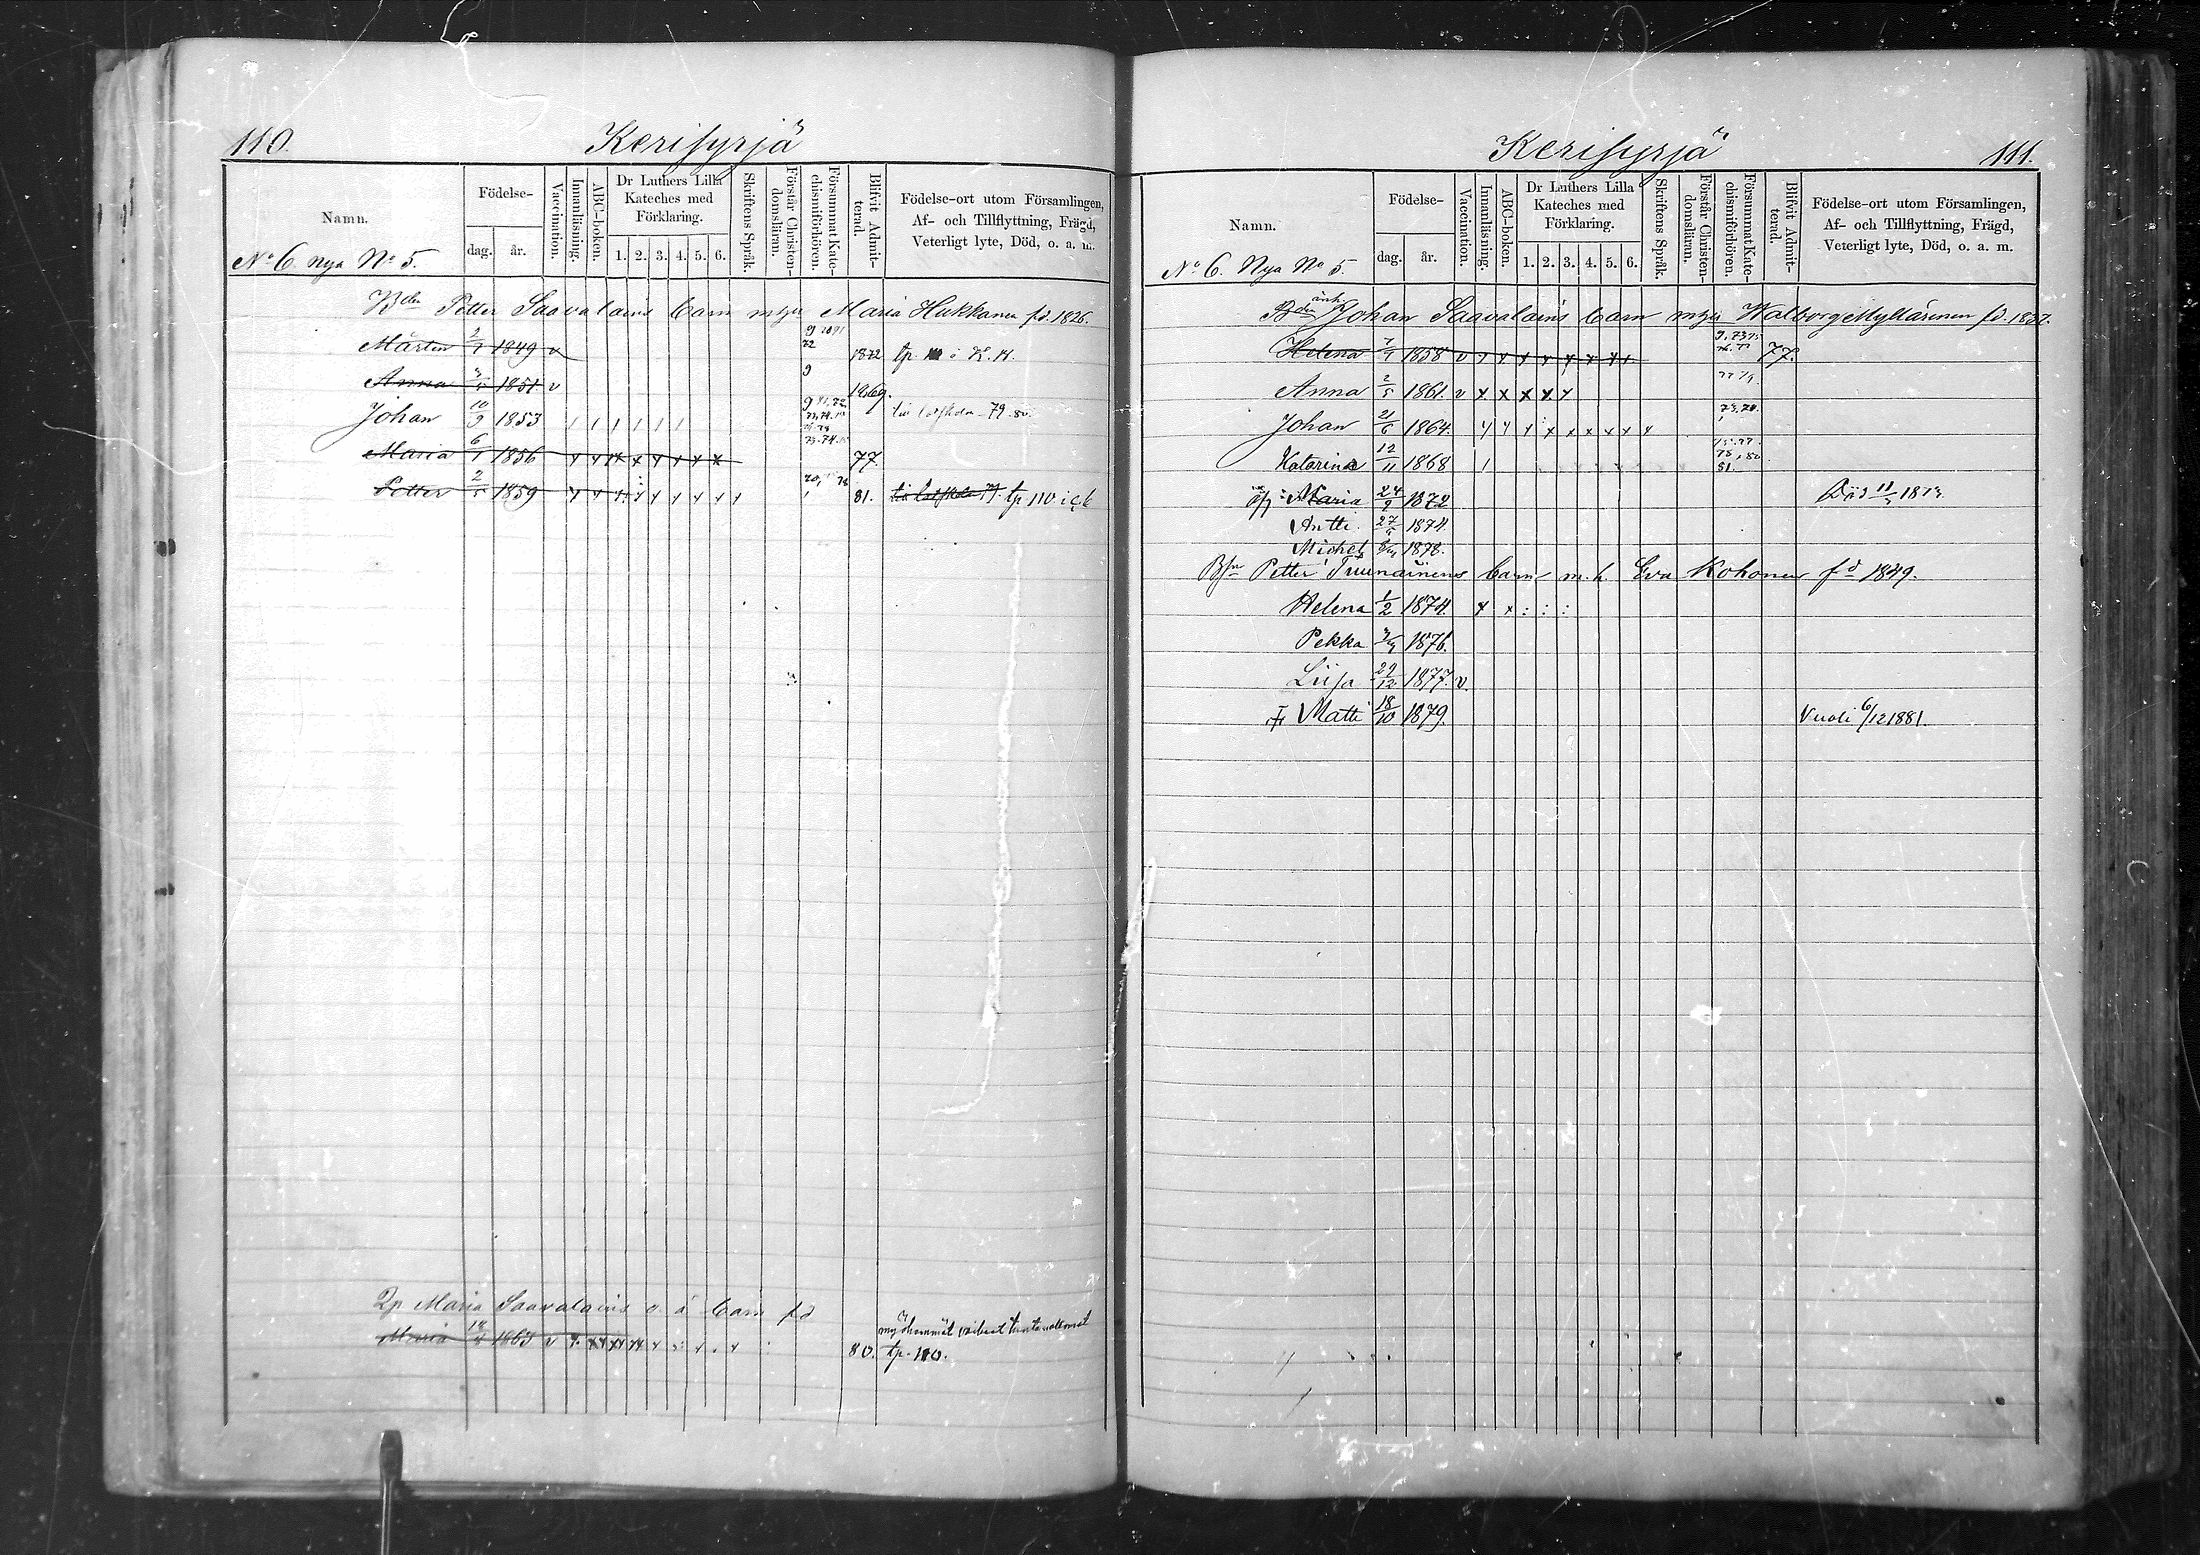 110.
Kerisyrjä
Namn.
Födelse-
dag.
år.
Vaccination.
Innanläsning.
ABC-boken.
Dr Luthers Lilla
Kateches med
Förklaring.
1. 2. 3. 4. 5. 6.
Skriftens Språk.
Förstår Christen-
domsläran.
Försummat Kate-
chismiförhören.
Blifvit Admit-
terad.
Födelse-ort utom Församlingen,
Af- och Tillflyttning, Frägd,
Veterligt lyte, Död, o. a. m.
No 6. nya No 5.
Bden Petter Saavalains barn m Maria Hukkanen fd. 1826.
Mårten 1849 v 1872 tp
Anna 1851 v 1869.
Johan 10/9 1853 79.80.
Maria 6/1 1856 77.
Petter 1859 81. tp 110
Maria Saavalains barn fd
Maria 1863 v 80. tp. 110.
Kerisyrjä
111.
Namn.
Födelse-
dag.
år.
Vaccination.
Innanläsning.
ABC-boken.
Dr Luthers Lilla
Kateches med
Förklaring.
1. 2. 3. 4. 5. 6.
Skriftens Språk.
Förstår Christen-
domsläran.
Försummat Kate-
chismiförhören.
Blifvit Admit-
terad.
Födelse-ort utom Församlingen,
Af- och Tillflyttning, Frägd,
Veterligt lyte, Död, o. a. m.
No 6. Nya No 5.
Bden Johan Saavalains barn m Walborg Myllärinen fd. 1837.
Helena 1858 v 77.
Anna 2/5 1861. v x x x x x
Johan 21/6 1864.
Katarina 12/11 1868
Maria 24/9 1872 Död 1873.
Antti 1874.
Michel 1878.
Petter Tuunainens barn m. h. Eva Kohonen fd 1849.
Helena 1/2 1874.
Pekka 1876.
Liisa 29/12 1877. v.
Matti 18/10 1879. Kuoli 6/12 1881.